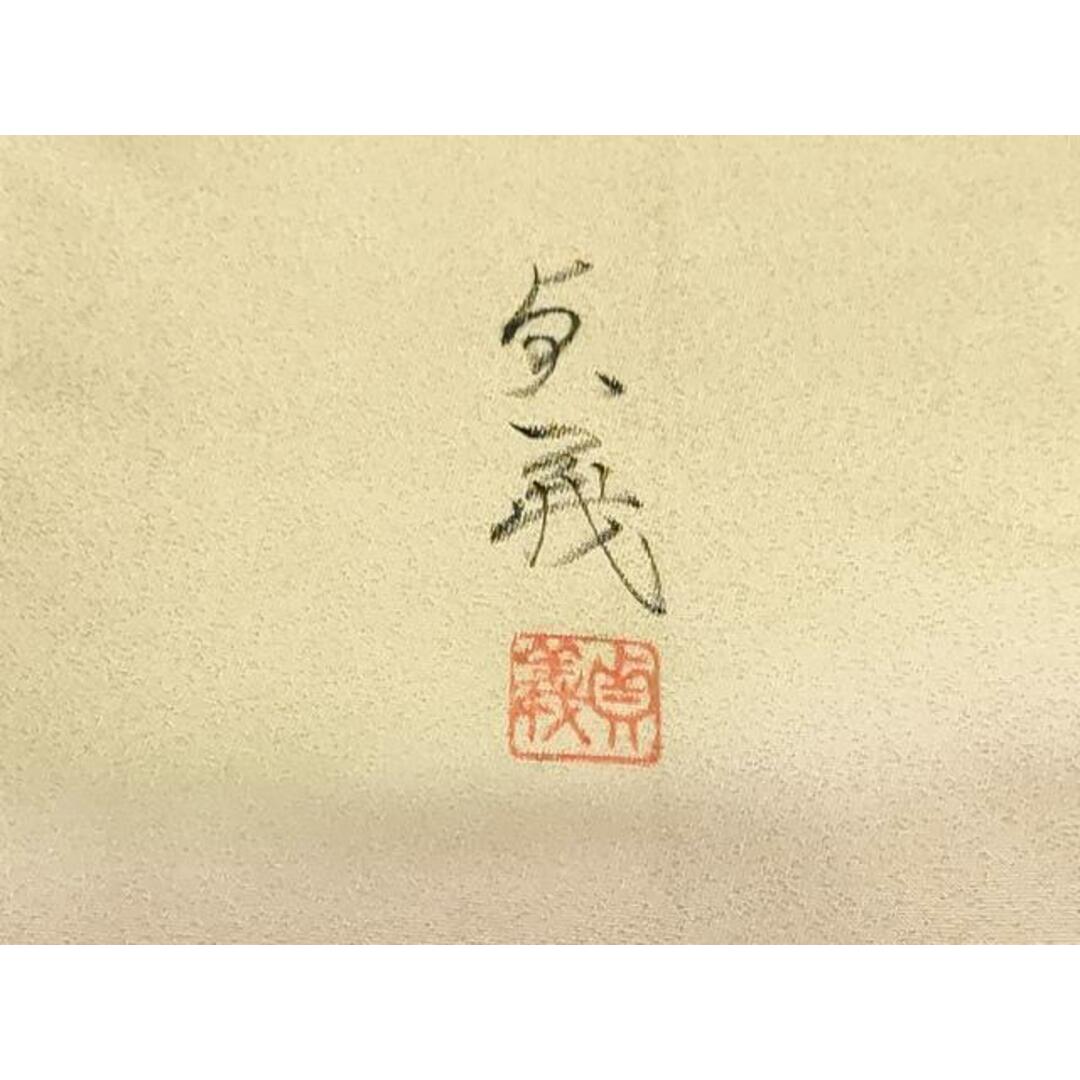 貞義
貞義